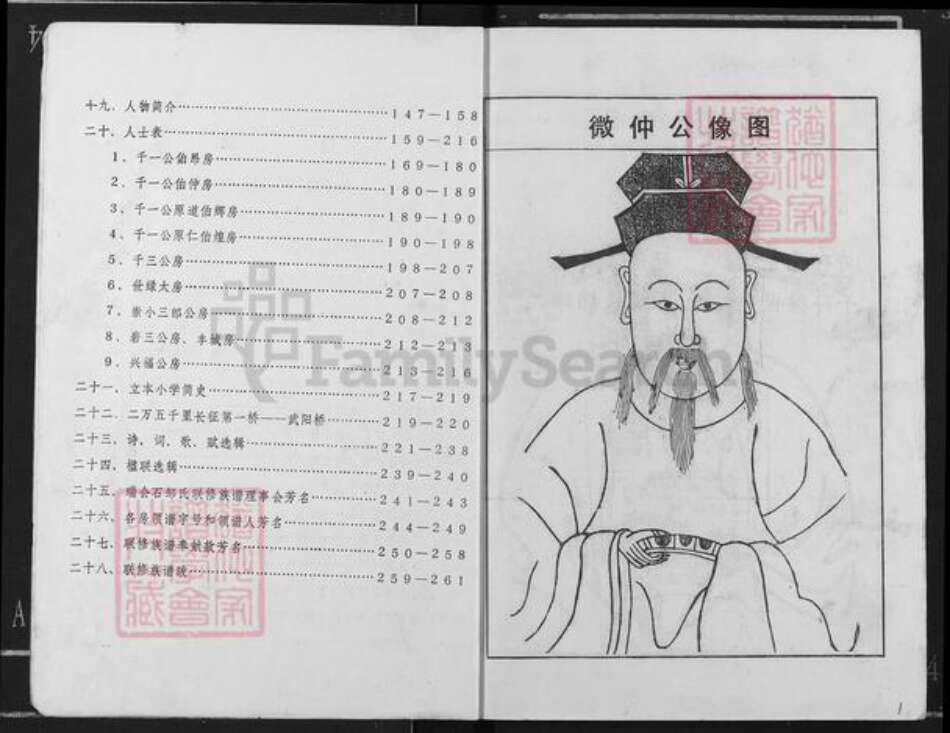 十九、人物简介……147—158
二十、人士表……159—216
1、千一公伯昂房……169—180
2、千一公伯仲房……180—189
3、千一公原道伯辉房……189—190
4、千一公原仁伯煌房……190—198
5、千三公房……198—207
6、仕绿大房……207—208
7、崇小三郎公房……208—212
8、岩三公房、丰城房……212—213
9、兴福公房……213—216
二十一、立本小学简史……217—219
二十二、二万五千里长征第一桥——武阳桥……219—220
二十三、诗、词、歌、赋选辑……221—238
二十四、楹联选辑……239—240
二十五、瑞会石邹氏联修族谱理事会芳名……241—243
二十六、各房领谱字号和领谱人芳名……244—249
二十七、联修族谱奉献款芳名……250—258
二十八、联修族谱跋……259—261
微仲公像图
FamilySearch
1
A
4